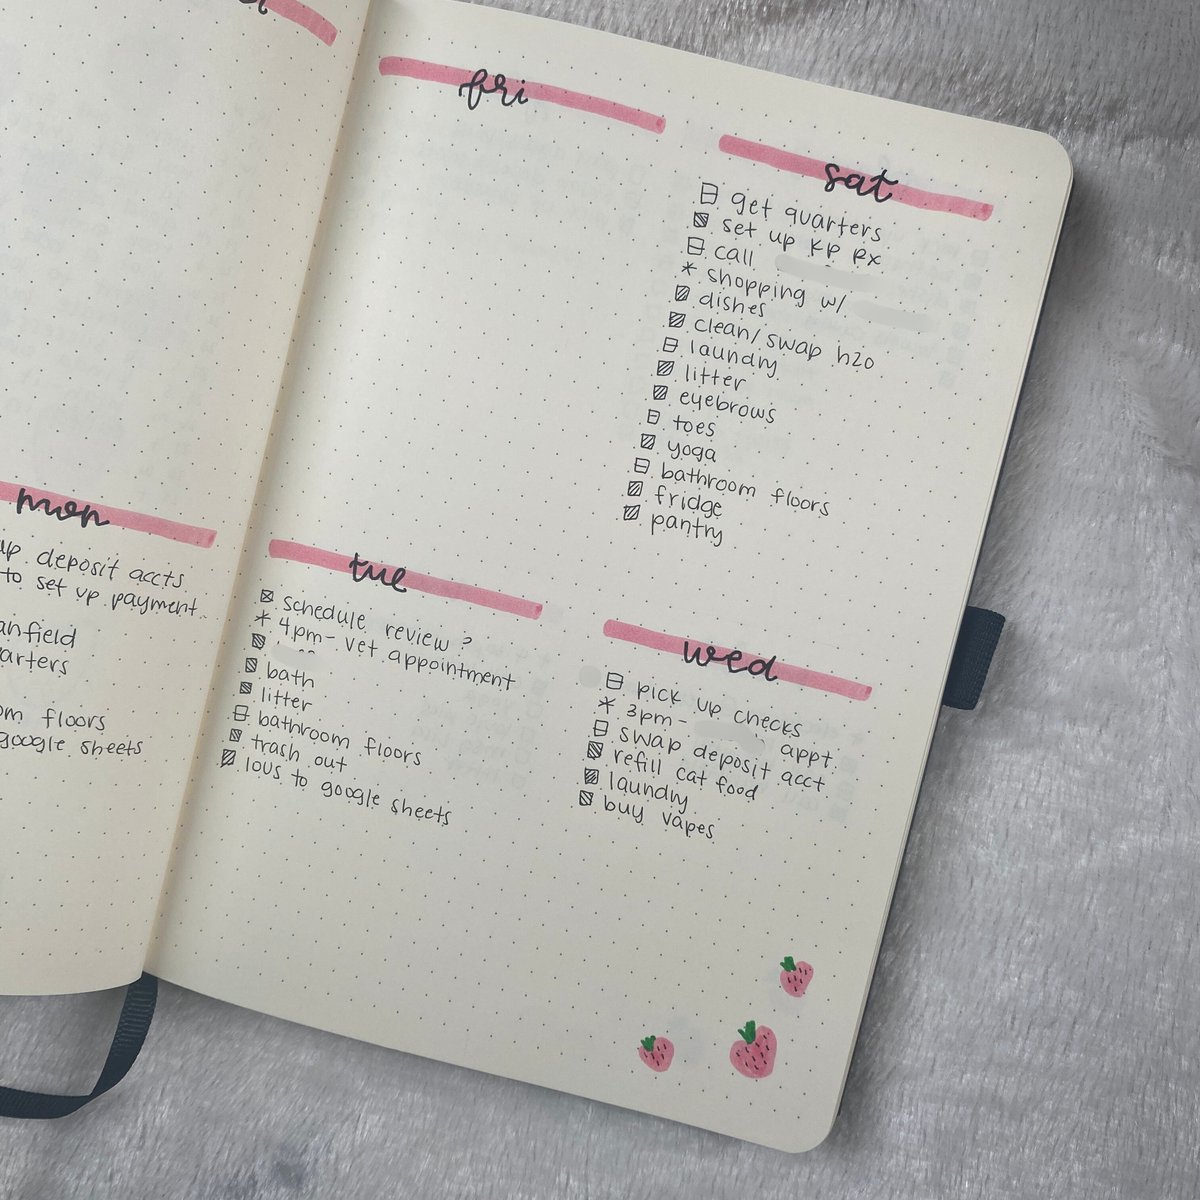 mon
up deposit accts
to set up payment
anfield
arters
om floors
google sheets
fri
sat
get quarters
set up KP RX
call
* shopping w/
dishes
clean/swap h2o
laundry
litter
eyebrows
toes
yoga
bathroom floors
fridge
pantry
tue
schedule review ?
* 4pm- vet appointment
bath
litter
bathroom floors
trash out
IOUS to google sheets
wed
pick up checks
* 3pm- appt.
swap deposit acct
refill cat food
laundry
buy vapes